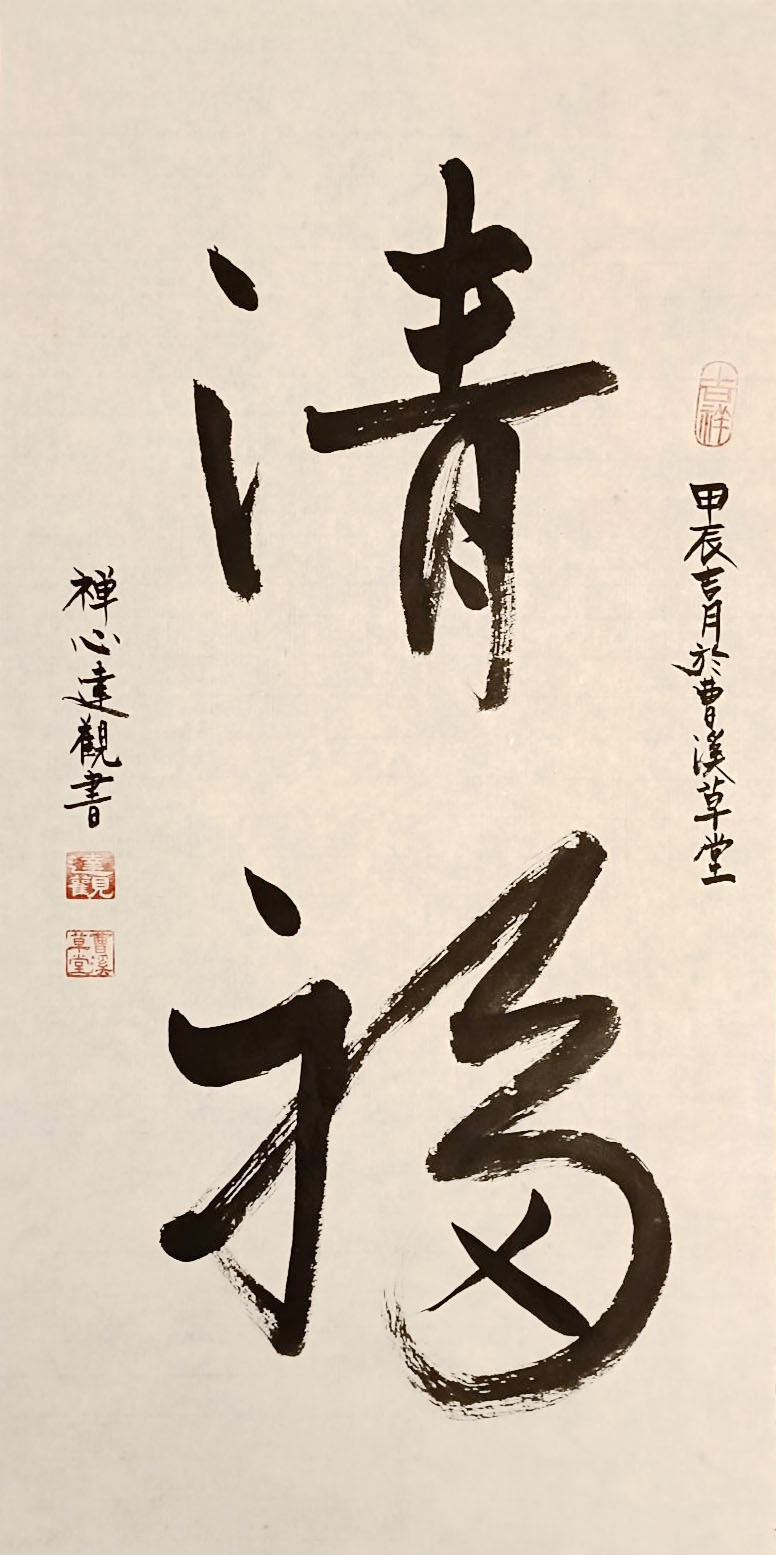 吉祥
甲辰吉月於曹溪草堂
清
福
禅心達觀書
達觀
曹溪草堂